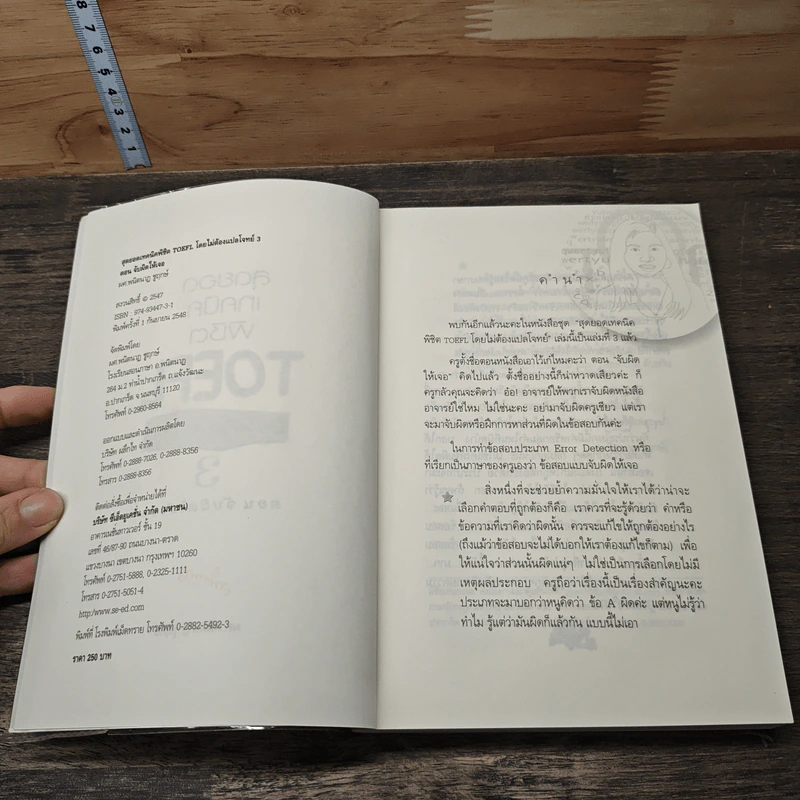 สุดยอดเทคนิคพิชิต TOEFL โดยไม่ต้องแปลโจทย์ 3
ตอน จับผิดให้เจอ
ผศ.พนิตนาฏ ชูฤกษ์
สงวนสิทธิ์ © 2547
ISBN : 974-93447-3-1
พิมพ์ครั้งที่ 1 กันยายน 2548
จัดพิมพ์โดย
ผศ.พนิตนาฏ ชูฤกษ์
โรงเรียนสอนภาษา อ.พนิตนาฏ
264 ม.2 ท่าน้ำปากเกร็ด ถ.แจ้งวัฒนะ
อ.ปากเกร็ด จ.นนทบุรี 11120
โทรศัพท์ 0-2960-8564
ออกแบบและดำเนินการผลิตโดย
บริษัท พลีกไท จำกัด
โทรศัพท์ 0-2888-7026, 0-2888-8356
โทรสาร 0-2888-8356
ติดต่อสั่งซื้อเพื่อจำหน่ายได้ที่
บริษัท ซีเอ็ดยูเคชั่น จำกัด (มหาชน)
อาคารเนชั่นทาวเวอร์ ชั้น 19
เลขที่ 46/87-90 ถนนบางนา-ตราด
แขวงบางนา เขตบางนา กรุงเทพฯ 10260
โทรศัพท์ 0-2751-5888, 0-2325-1111
โทรสาร 0-2751-5051-4
http://www.se-ed.com
พิมพ์ที่ โรงพิมพ์เม็ดทราย โทรศัพท์ 0-2882-5492-3
ราคา 250 บาท
คำนำ
พบกันอีกแล้วนะคะในหนังสือชุด "สุดยอดเทคนิค
พิชิต TOEFL โดยไม่ต้องแปลโจทย์" เล่มนี้เป็นเล่มที่ 3 แล้ว
ครูตั้งชื่อตอนหนังสือเอาไว้เก๋ไหมคะว่า ตอน "จับผิด
ให้เจอ" คิดไปแล้ว ตั้งชื่ออย่างนี้ก็น่าหวาดเสียวค่ะ ก็
ครูกลัวคุณจะคิดว่า "อ๋อ! อาจารย์ให้พวกเราจับผิดหนังสือ
อาจารย์ใช่ไหม ไม่ใช่นะคะ อย่ามาจับผิดครูเชียว แต่เรา
จะมาจับผิดหรือฝึกการหาส่วนที่ผิดในข้อสอบกันค่ะ
ในการทำข้อสอบประเภท Error Detection หรือ
ที่เรียกเป็นภาษาของครูเองว่า ข้อสอบแบบจับผิดให้เจอ
สิ่งหนึ่งที่จะช่วยย้ำความมั่นใจให้เราได้ว่าน่าจะ
เลือกคำตอบที่ถูกต้องก็คือ เราควรที่จะรู้ด้วยว่า คำหรือ
ข้อความที่เราคิดว่าผิดนั้น ควรจะแก้ไขให้ถูกต้องอย่างไร
(ถึงแม้ว่าข้อสอบจะไม่ได้บอกให้เราต้องแก้ไขก็ตาม) เพื่อ
ให้แน่ใจว่าส่วนนั้นผิดแน่ๆ ไม่ใช่เป็นการเลือกโดยไม่มี
เหตุผลประกอบ ครูถือว่าเรื่องนี้เป็นเรื่องสำคัญนะคะ
ประเภทจะมาบอกว่าหนูคิดว่า ข้อ A ผิดค่ะ แต่หนูไม่รู้ว่า
ทำไม รู้แต่ว่ามันผิดก็แล้วกัน แบบนี้ไม่เอา
8
7
6
5
4
3
2
1